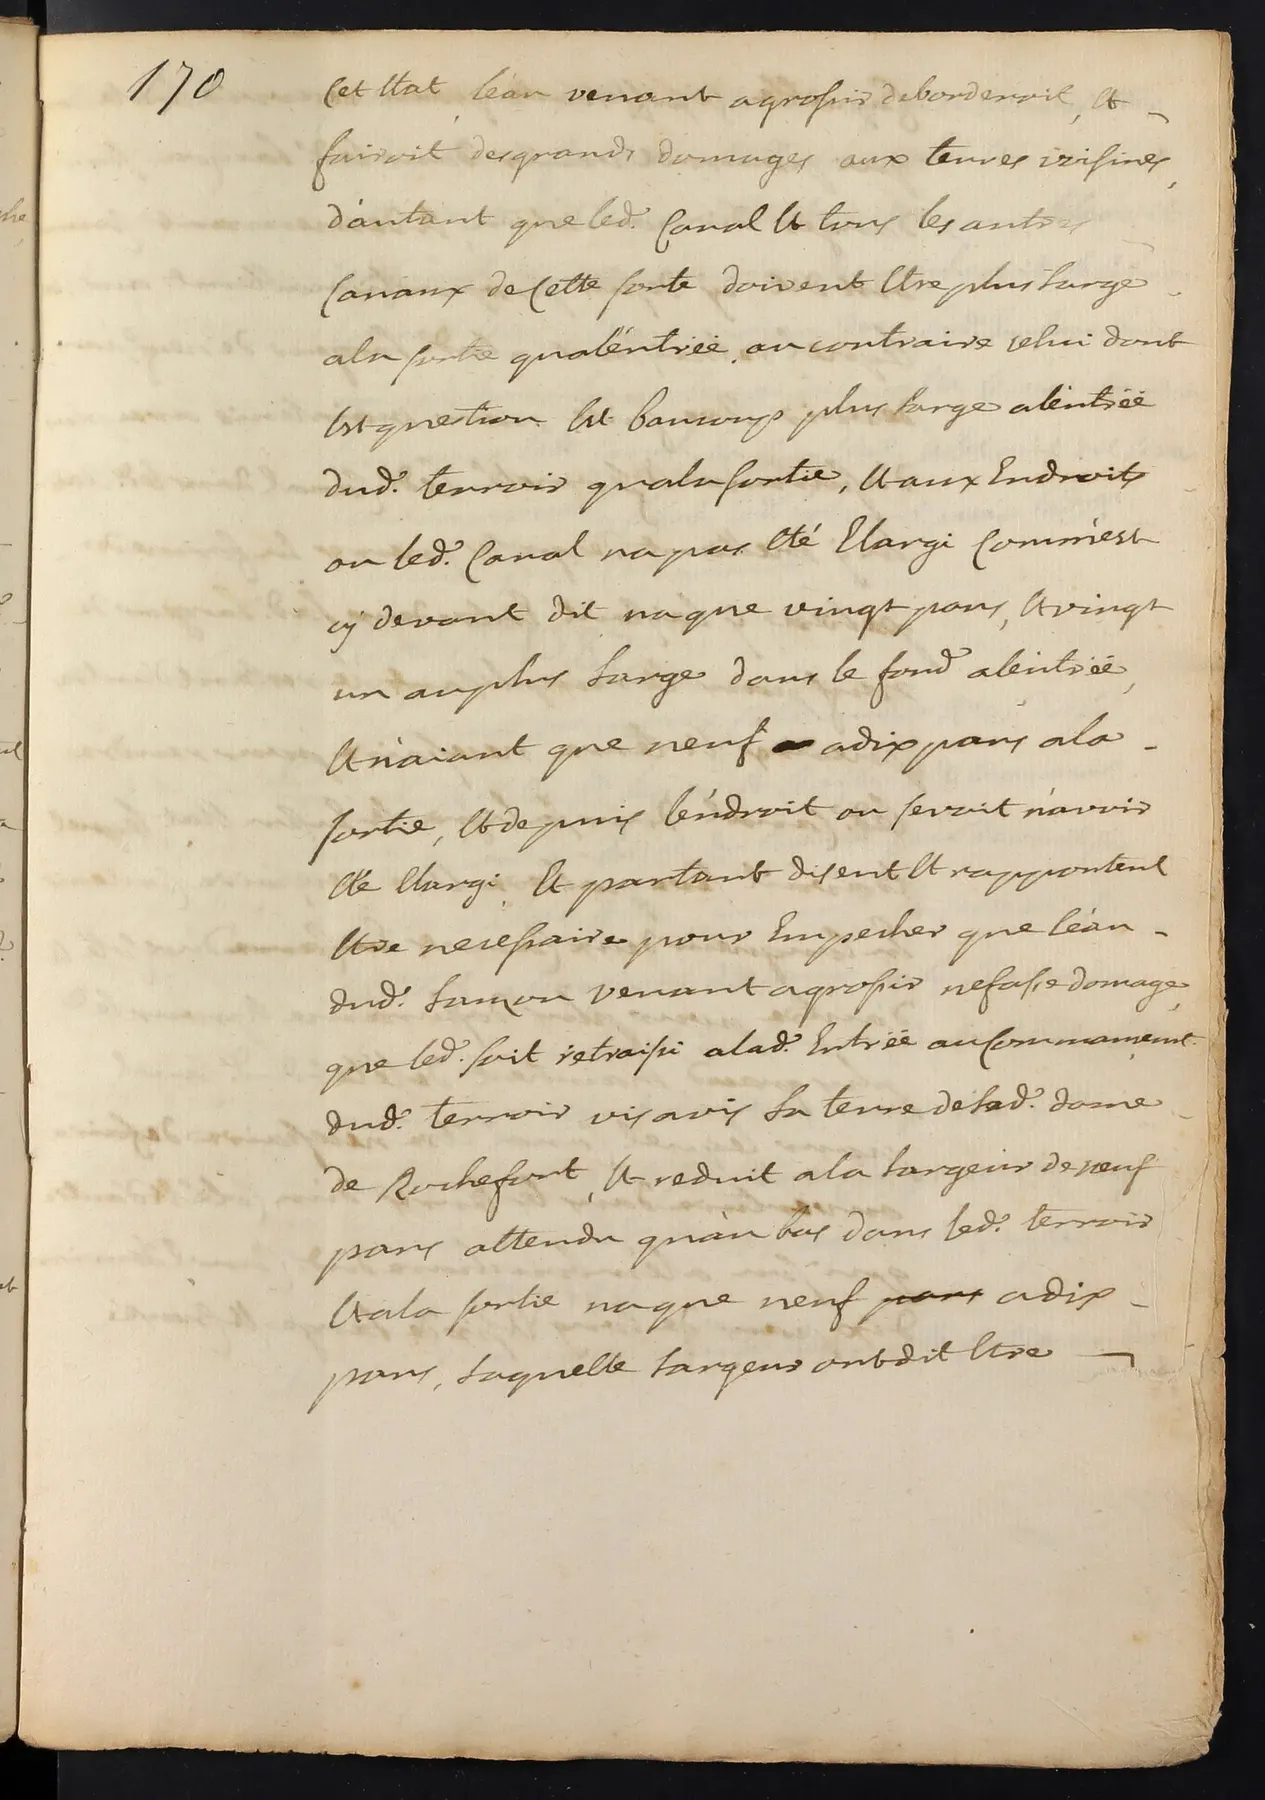 170
Cet Etat, léau venant a grossir deborderoit, Et
fairoit des grands domages aux terres voisines,
dáutant que led. Canal Et tous les autres
Canaux de Cette sorte doivent Etre plus large
a la sortie qu'aléntrëë, au contraire celui dont
Est question Est baucoup plus large aléntrëë
dud. terroir quala sortie, Et aux Endroits
ou led. Canal na pas Eté Elargi Comm'est
cy devant dit na que vingt pans, Et vingt
un au plus large dans le fond aléntrëë,
Et n'aiant que neuf a dix pans a la
sortie, Et depuis léndroit ou seroit n'avoir
Eté Elargi, Et partant disent Et rapportent
Etre necessaire pour Empecher que léau
dud. Lauzon venant a grossir ne fasse domage,
que led. soit retraissi a lad. Entrëë au Commancement
dud. terroir vis a vis la terre de lad. dame
de Rochefort, Et reduit a la largeur de neuf
pans attendu qu'au bas dans led. terroir
Et a la sortie na que neuf pans a dix
pans, laquelle largeur ont dit Etre